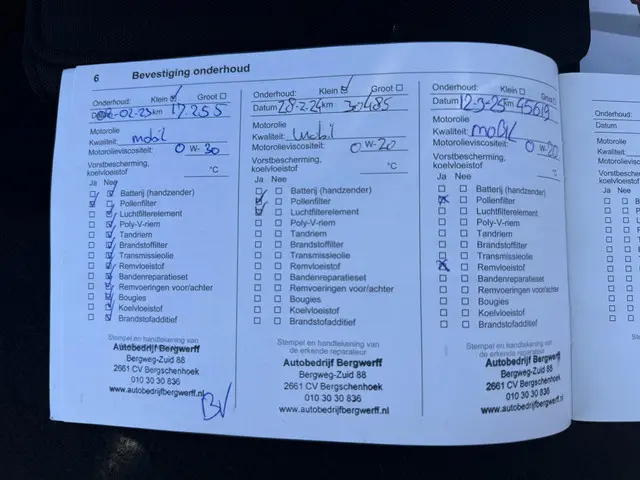 6 Bevestiging onderhoud
Onderhoud: Klein Groot
02-02-23 km 17.255
Motorolie
Kwaliteit: mobil
Motorolieviscositeit: 0 W-30
Vorstbescherming,
koelvloeistof °C
Ja Nee
Batterij (handzender)
Pollenfilter
Luchtfilterelement
Poly-V-riem
Tandriem
Brandstoffilter
Transmissieolie
Remvloeistof
Bandenreparatieset
Remvoeringen voor/achter
Bougies
Koelvloeistof
Brandstofadditief
Stempel en handtekening van
de erkende reparateur
Autobedrijf Bergwerff
Bergweg-Zuid 88
2661 CV Bergschenhoek
010 30 30 836
www.autobedrijfbergwerff.nl
BV
Onderhoud: Klein Groot
Datum 28-2-24 km 30485
Motorolie
Kwaliteit: mobil
Motorolieviscositeit: 0 W-20
Vorstbescherming,
koelvloeistof °C
Ja Nee
Batterij (handzender)
Pollenfilter
Luchtfilterelement
Poly-V-riem
Tandriem
Brandstoffilter
Transmissieolie
Remvloeistof
Bandenreparatieset
Remvoeringen voor/achter
Bougies
Koelvloeistof
Brandstofadditief
Stempel en handtekening van
de erkende reparateur
Autobedrijf Bergwerff
Bergweg-Zuid 88
2661 CV Bergschenhoek
010 30 30 836
www.autobedrijfbergwerff.nl
Onderhoud: Klein Groot
Datum 12-3-25 km
Motorolie
Kwaliteit: mobil
Motorolieviscositeit: 0 W-20
Vorstbescherming,
koelvloeistof °C
Ja Nee
Batterij (handzender)
Pollenfilter
Luchtfilterelement
Poly-V-riem
Tandriem
Brandstoffilter
Transmissieolie
Remvloeistof
Bandenreparatieset
Remvoeringen voor/achter
Bougies
Koelvloeistof
Brandstofadditief
Stempel en handtekening van
de erkende reparateur
Autobedrijf Bergwerff
Bergweg-Zuid 88
2661 CV Bergschenhoek
010 30 30 836
www.autobedrijfbergwerff.nl
Onderhoud:
Datum
Motorolie
Kwaliteit:
Motorolieviscosite
Vorstbescherming
koelvloeistof
Ja Nee